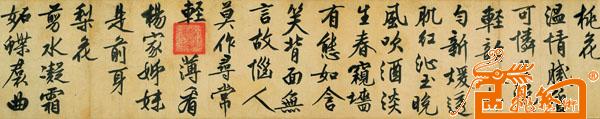 桃花
温情膩質
可憐
輕
勻新暖透
肌紅沁玉晚
風吹酒淡
生春窺墻
有態如含
笑背面無
言故惱人
莫作尋常
輕薄看
楊家姊妹
是前身
梨花
剪水凝霜
妬蝶裙曲